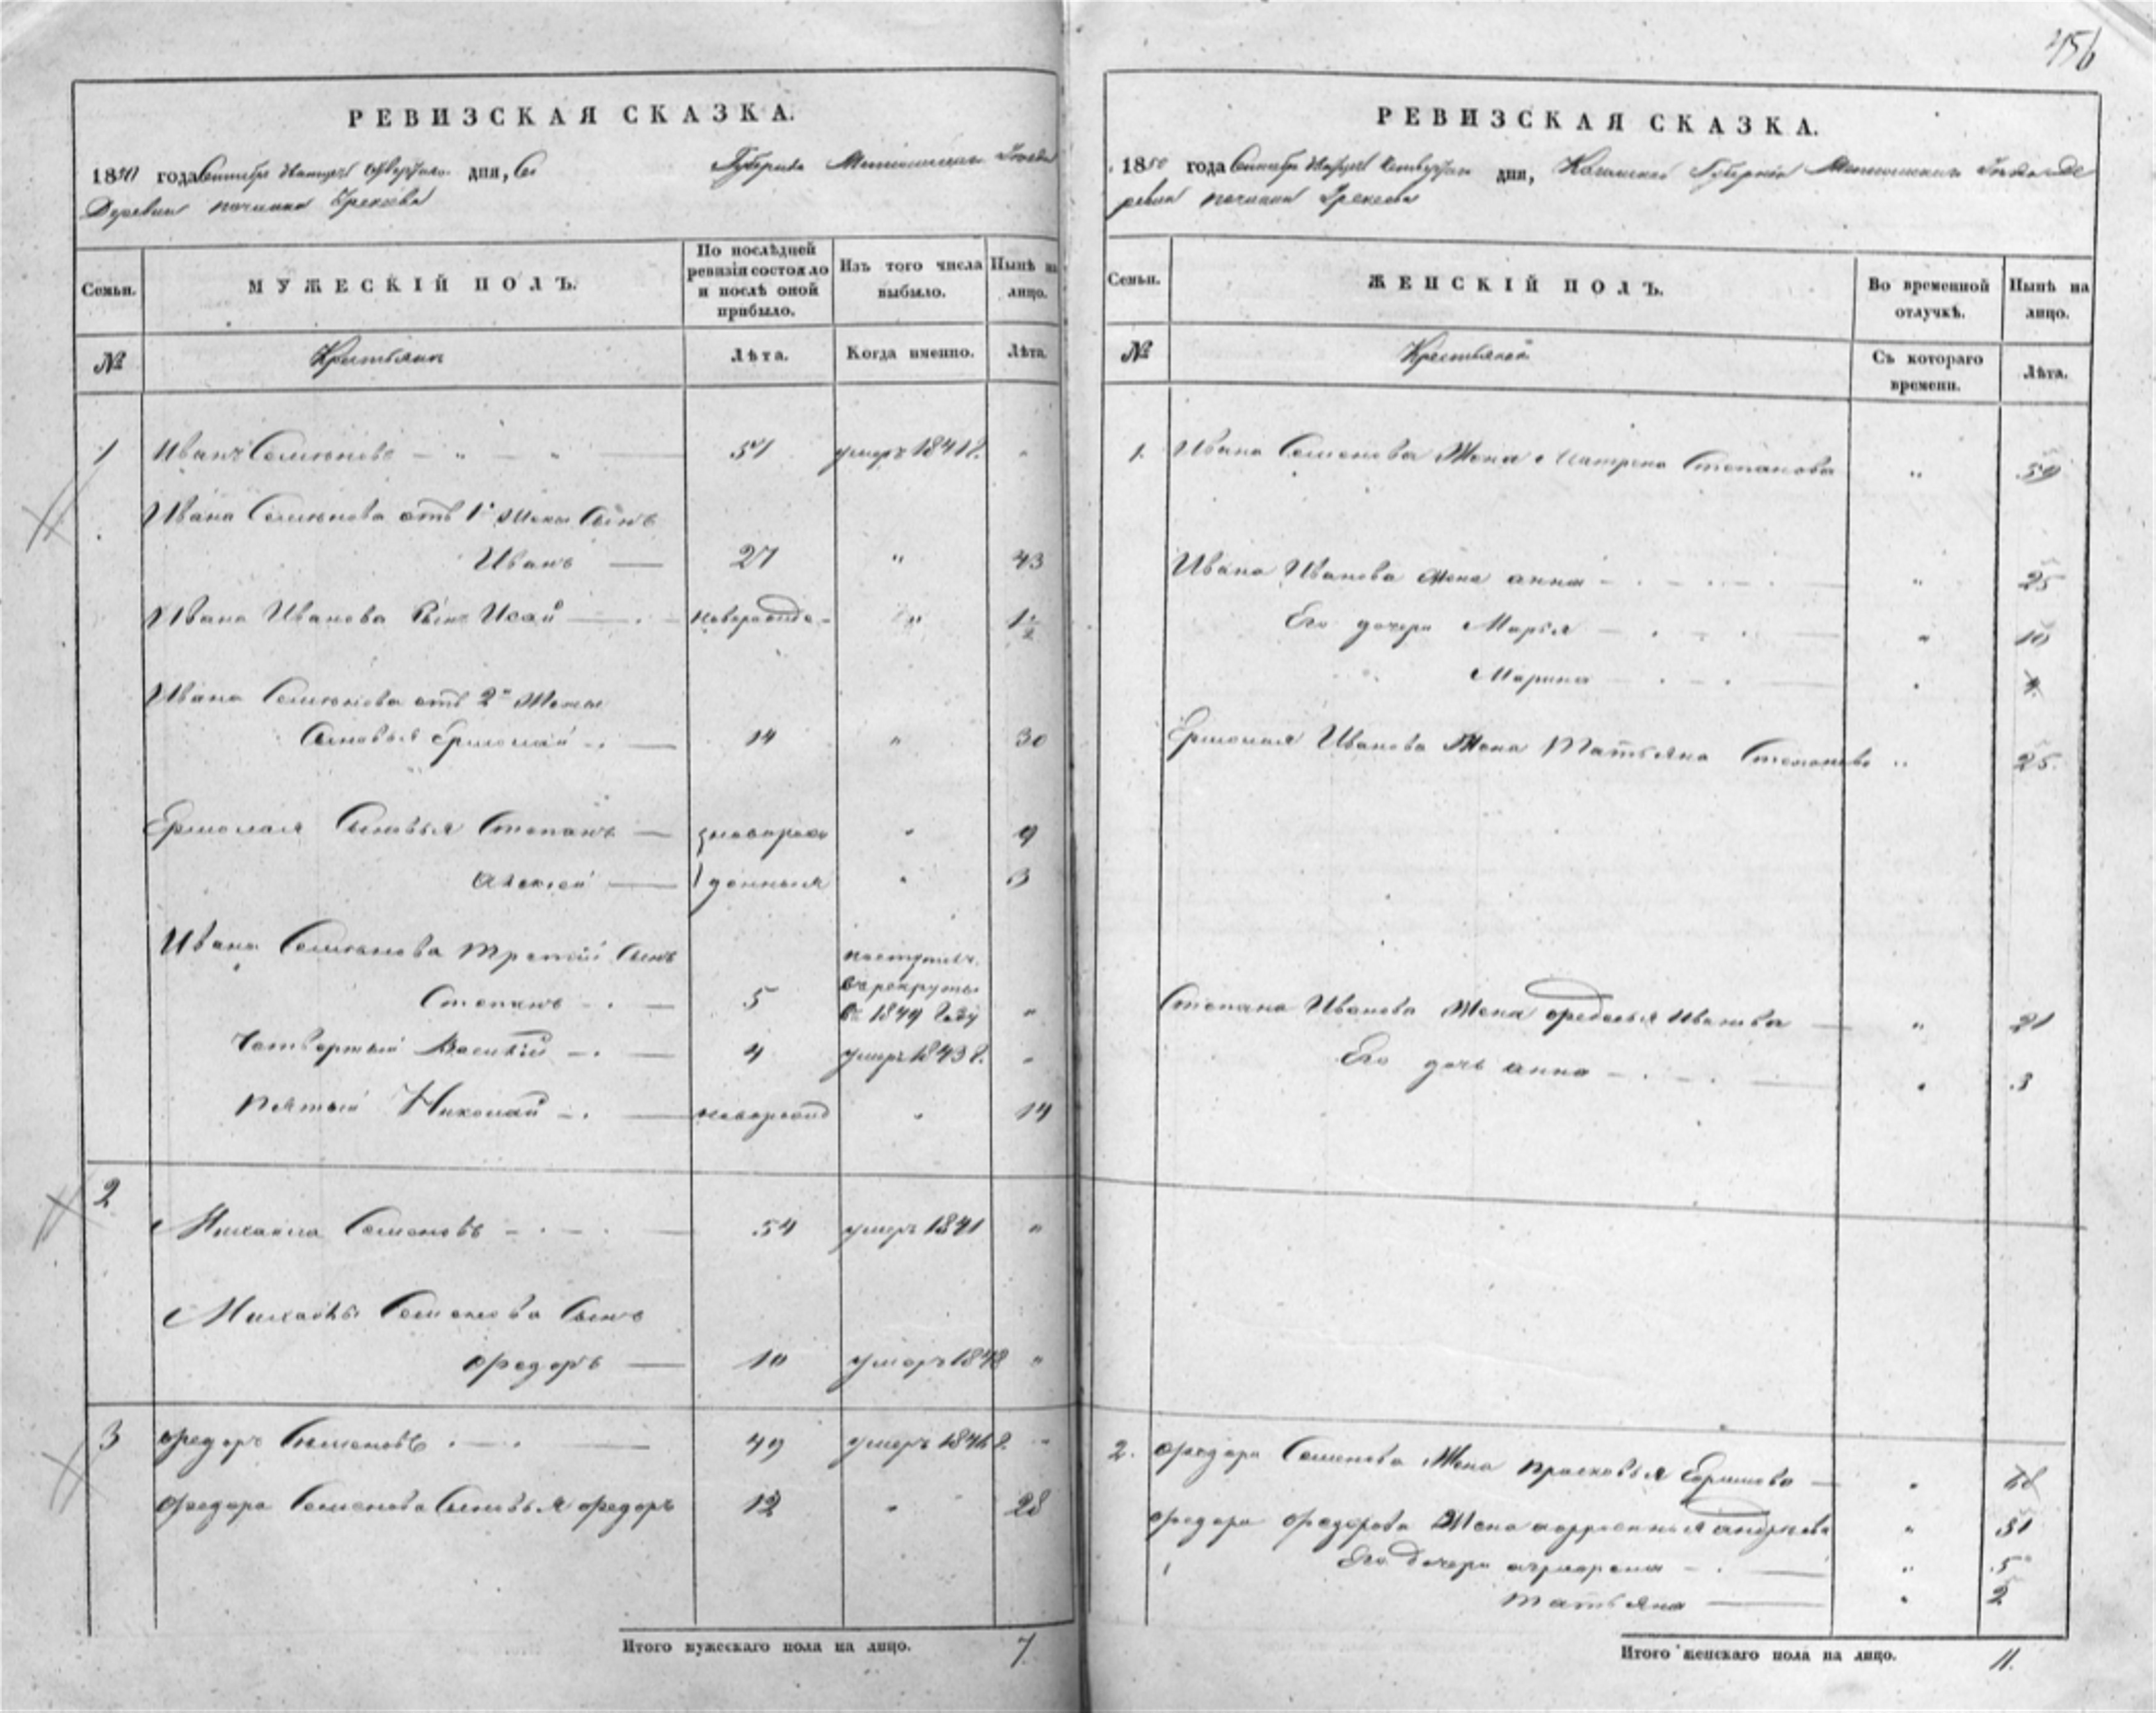 456
РЕВИЗСКАЯ СКАЗКА.
1850 года Сентября дня,
Губернiи
Деревни починка
Семьи.
МУЖЕСКІЙ ПОЛЪ.
По послѣдней ревизіи состояло и послѣ оной прибыло.
Изъ того числа выбыло.
Нынѣ на лицо.
№
Крестьяне
Лѣта.
Когда именно.
Лѣта.
1 Иванъ Семеновъ 51 умеръ 1841 г. "
Ивана Семенова отъ 1й жены сынъ
Иванъ 27 " 43
Ивана Иванова сынъ Исай новорожде- " 1 1/2
Ивана Семенова отъ 2й жены
сыновья Ермолай 14 " 30
Ермолая сыновья Степанъ новорож " 9
Алексей денныя " 3
Ивана Семенова третий сынъ
Степанъ 5 поступилъ в рекруты въ 1849 году "
Четвертый Василий 4 умеръ 1843 г. "
Пятый Николай новорожд " 14
2
Михаила Семеновъ 54 умеръ 1841 "
Михаилы Семенова сынъ
Федоръ 10 умеръ 1848 "
3 Федоръ Семеновъ 49 умеръ г. "
Федора Семенова сыновья Федоръ 12 " 28
Итого мужескаго пола на лицо. 7
РЕВИЗСКАЯ СКАЗКА.
1850 года Сентября дня, Казанской Губерніи Де
ревни починка
Семьи.
ЖЕНСКІЙ ПОЛЪ.
Во временной отлучкѣ.
Нынѣ на лицо.
№
Крестьянъ
Съ котораго времени.
Лѣта.
1. Ивана Семенова жена Матрена Степанова "
Ивана Иванова жена Анна " 25
Его дочери Марья " 10
Марина "
Ермолая Иванова жена Татьяна Степанова " 25
Степана Иванова жена Федосья Иванова " 21
Его дочь Анна " 3
2. Федора Семенова жена Прасковья "
Федора Федорова жена " 31
Его дочери " 5
Татьяна " 2
Итого женскаго пола на лицо. 11.